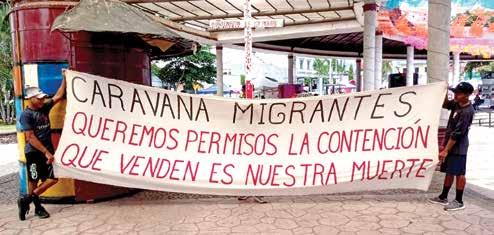 CARAVANA MIGRANTES
QUEREMOS PERMISOS LA CONTENCIÓN
QUE VENDEN ES NUESTRA MUERTE